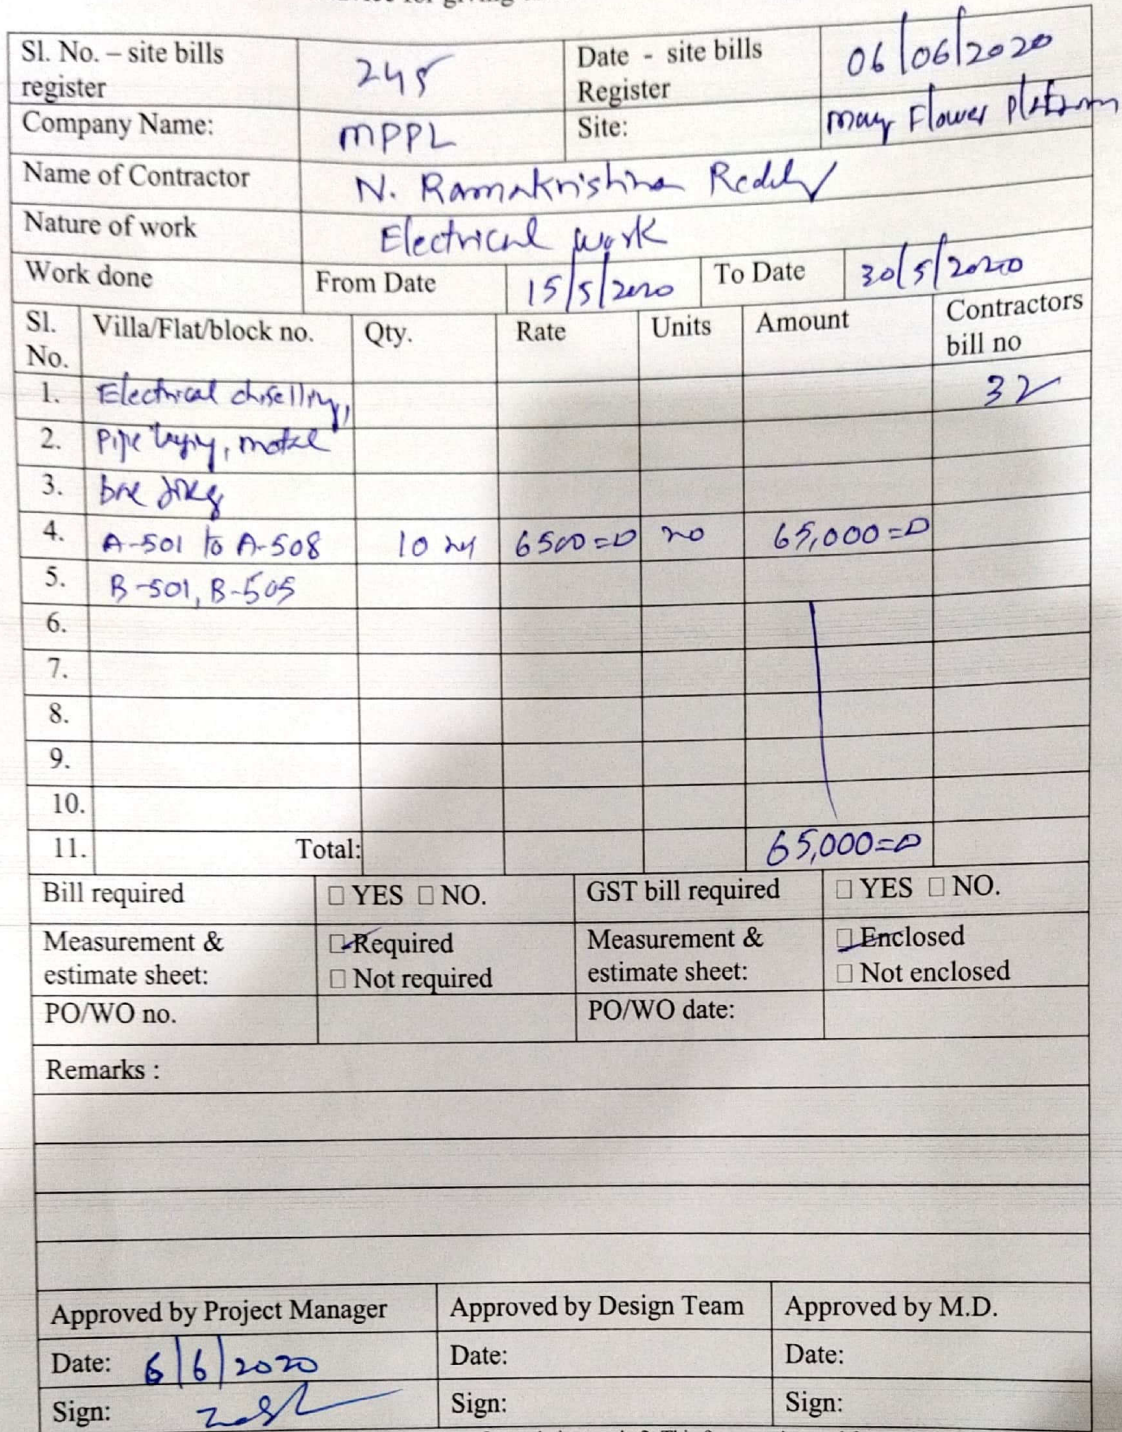 for giving
Sl. No. – site bills register 245 Date - site bills Register 06/06/2020
Company Name: MPPL Site: may Flower platinum
Name of Contractor N. Ramakrishna Reddy
Nature of work Electrical work
Work done From Date 15/5/2020 To Date 30/5/2020
Sl. No. Villa/Flat/block no. Qty. Rate Units Amount Contractors bill no
1. Electrical chiselling, 32
2. Pipe laying, metal
3. box
4. A-501 to A-508 10 6500=0 no 65,000=0
5. B-501, B-505
6.
7.
8.
9.
10.
11. Total: 65,000=0
Bill required □ YES □ NO. GST bill required □ YES □ NO.
Measurement & estimate sheet: □ Required □ Not required Measurement & estimate sheet: □ Enclosed □ Not enclosed
PO/WO no. PO/WO date:
Remarks :
Approved by Project Manager Approved by Design Team Approved by M.D.
Date: 6/6/2020 Date: Date:
Sign: Sign: Sign: